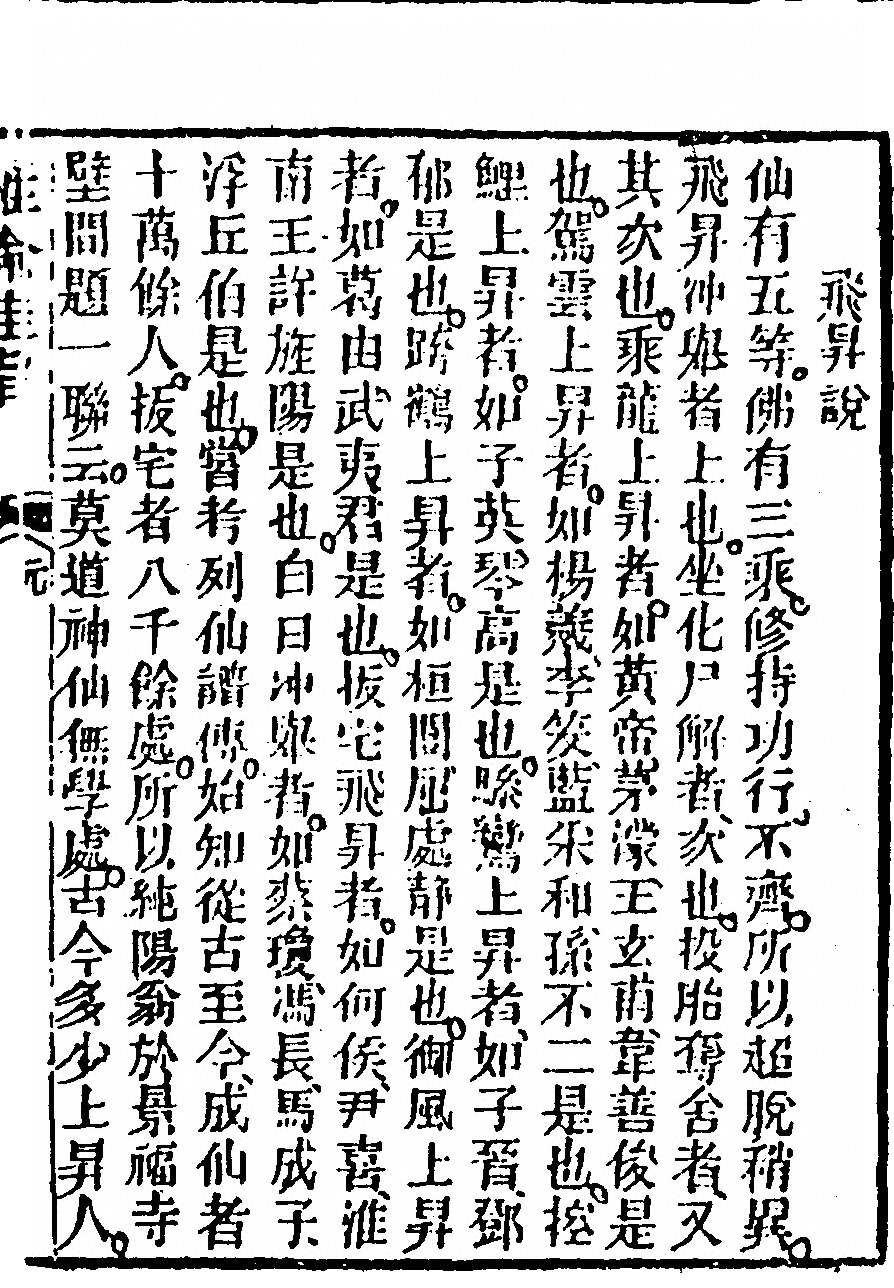 飛昇說
仙有五等。佛有三乘。修持功行、不齊。所以超脫稍異。
飛昇冲舉者上也。坐化尸解者、次也。投胎奪舍者、又
其次也。乘龍上昇者。如黃帝、茅濛、王玄甫、韋善俊是
也。駕雲上昇者。如楊羲、李筌、藍采和、孫不二是也。控
鯉上昇者。如子英、琴高是也。驂鸞上昇者、如子晉、鄧
郁是也。跨鶴上昇者。如桓闓、屈處靜是也。御風上昇
者。如葛由、武夷君是也。拔宅飛昇者。如何侯、尹喜、淮
南王、許旌陽是也。白日冲舉者。如蔡瓊、馮長、馬成子、
浮丘伯是也。嘗考列仙譜傳。始知從古至今、成仙者
十萬餘人。拔宅者八千餘處。所以純陽翁於景福寺
壁間題一聯云。莫道神仙無學處。古今多少上昇人。
性命圭旨
元